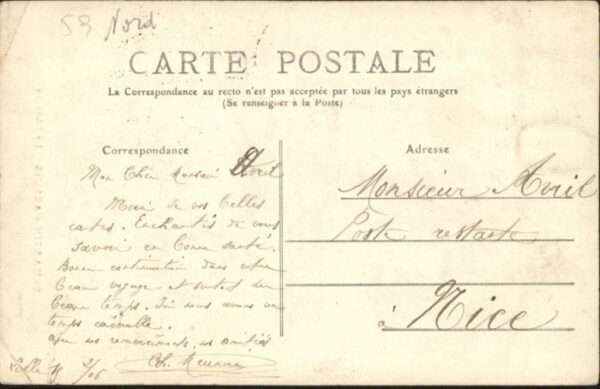 59 Nord
CARTE POSTALE
La Correspondance au recto n'est pas acceptée par tous les pays étrangers
(Se renseigner à la Poste)
Correspondance
Adresse
Mon Cher Monsieur Avril
Merci de vos belles
cartes. Enchantés de vous
savoir en bonne santé.
Bonne continuation dans votre
beau voyage et surtout
beau temps. Ici nous avons un
temps
avec nos remerciements, nos amitiés
Monsieur Avril
Poste restante
à Nice